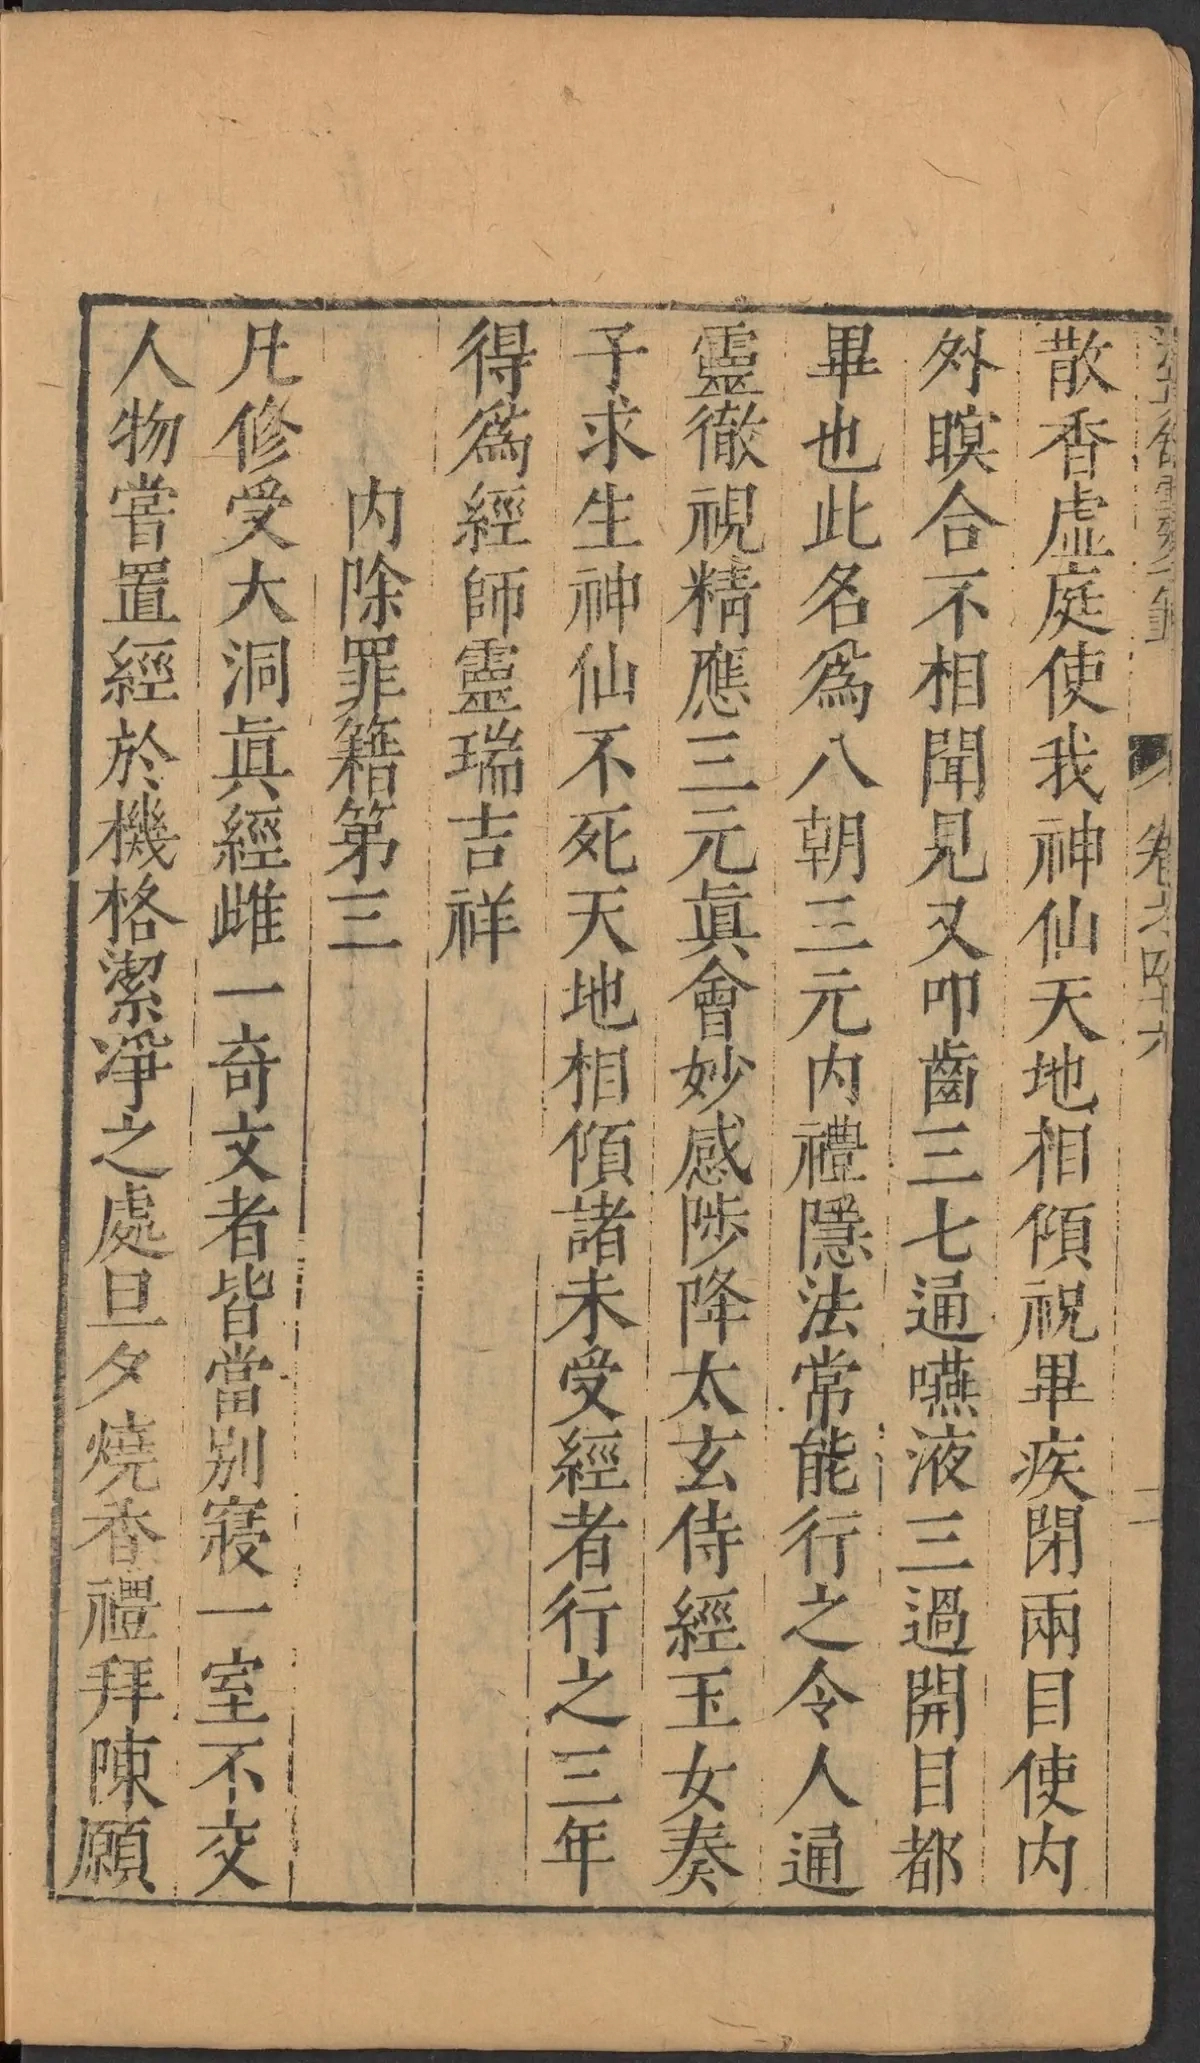 卷之四十六
二
散香虛庭使我神仙天地相傾祝畢疾閉兩目使内
外瞑合不相聞見又叩齒三七通嚥液三過開目都
畢也此名爲八朝三元内禮隱法常能行之令人通
靈徹視精應三元眞會妙感陟降太玄侍經玉女奏
子求生神仙不死天地相傾諸未受經者行之三年
得爲經師靈瑞吉祥
内除罪籍第三
凡修受大洞眞經雌一奇文者皆當别寢一室不交
人物嘗置經於機格潔凈之處旦夕燒香禮拜陳願